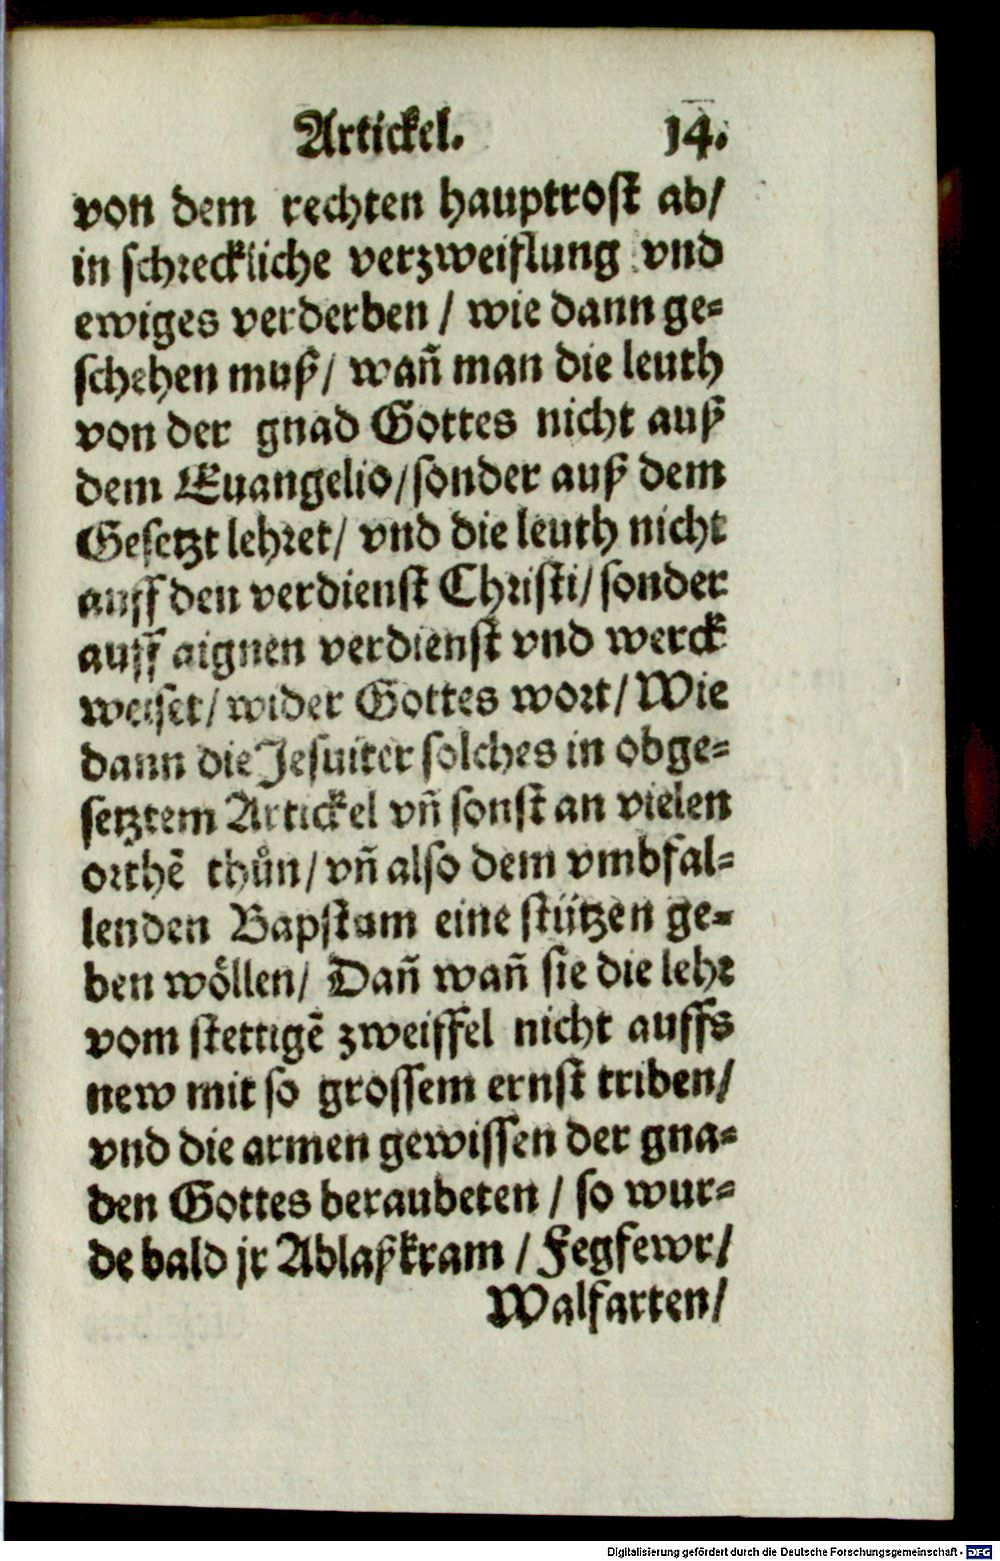 Artickel. 14.
von dem rechten hauptrost ab/
in schreckliche verzweiflung vnd
ewiges verderben / wie dann ge=
schehen muß/ wañ man die leuth
von der gnad Gottes nicht auß
dem Euangelio/sonder auß dem
Gesetzt lehret/ vnd die leuth nicht
auff den verdienst Christi/ sonder
auff aignen verdienst vnd werck
weiset/ wider Gottes wort/ Wie
dann die Jesuiter solches in obge=
setztem Artickel vñ sonst an vielen
orthẽ thůn/ vñ also dem vmbfal=
lenden Bapstum eine stützen ge=
ben wöllen/ Dañ wañ sie die lehr
vom stettigẽ zweiffel nicht auffs
new mit so grossem ernst triben/
vnd die armen gewissen der gna=
den Gottes beraubeten / so wur=
de bald jr Ablaßkram / Fegfewr/
Walfarten/
Digitalisierung gefördert durch die Deutsche Forschungsgemeinschaft - DFG